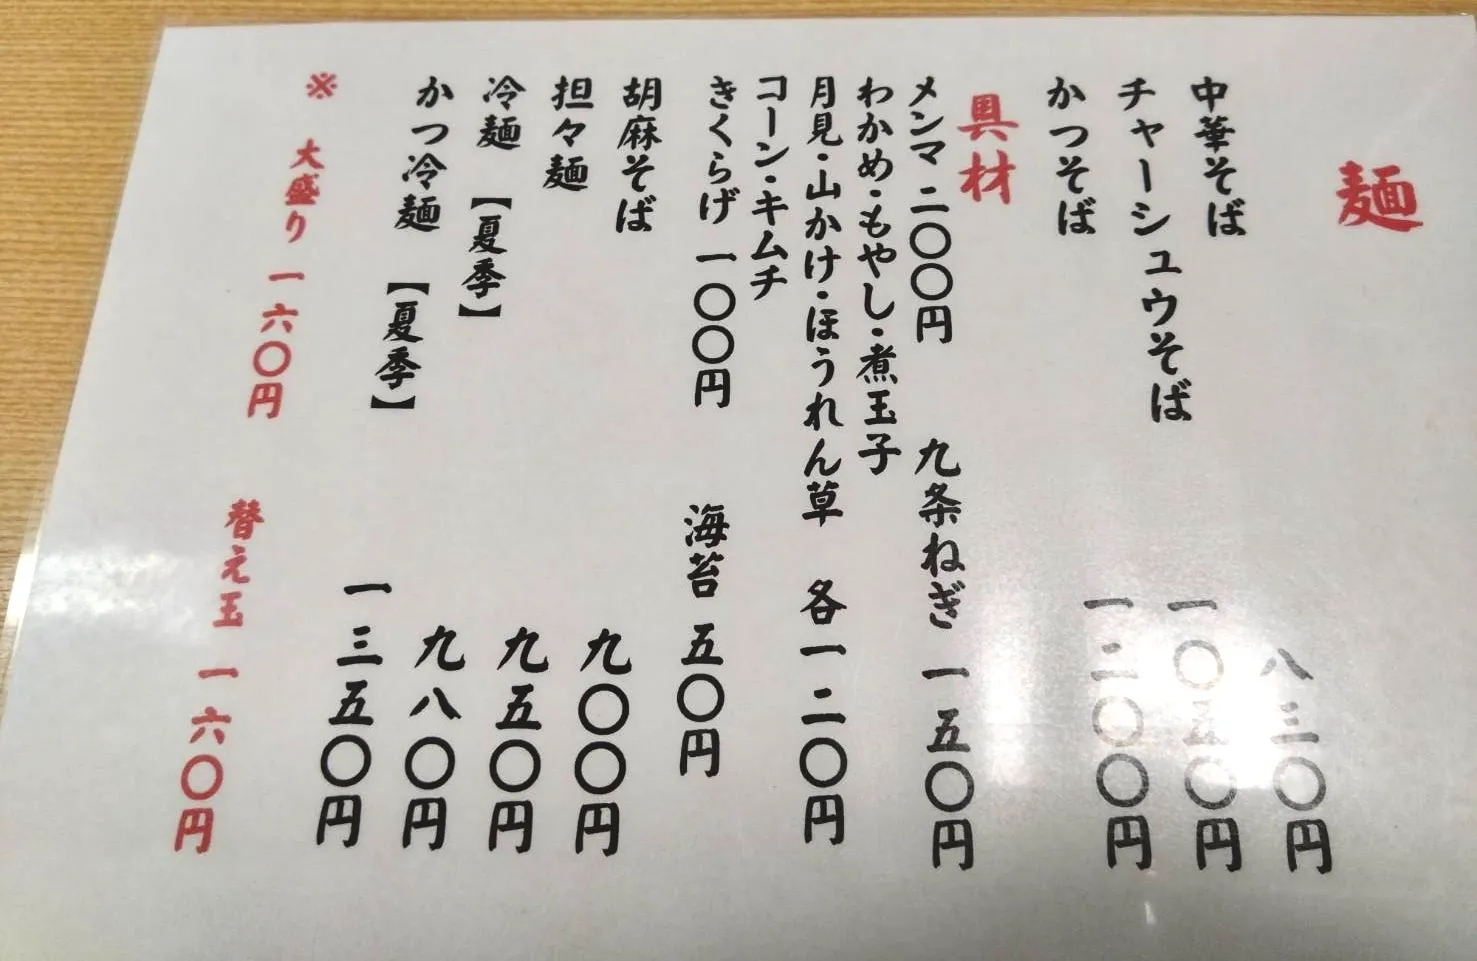 麺
中華そば 八三〇円
チャーシュウそば
かつそば 一二〇〇円
具材
メンマ 二〇〇円 九条ねぎ 一五〇円
わかめ・もやし・煮玉子
月見・山かけ・ほうれん草 各一二〇円
コーン・キムチ
きくらげ 一〇〇円 海苔 五〇円
胡麻そば 九〇〇円
担々麺 九五〇円
冷麺 【夏季】 九八〇円
かつ冷麺 【夏季】 一三五〇円
※ 大盛り 一六〇円 替え玉 一六〇円